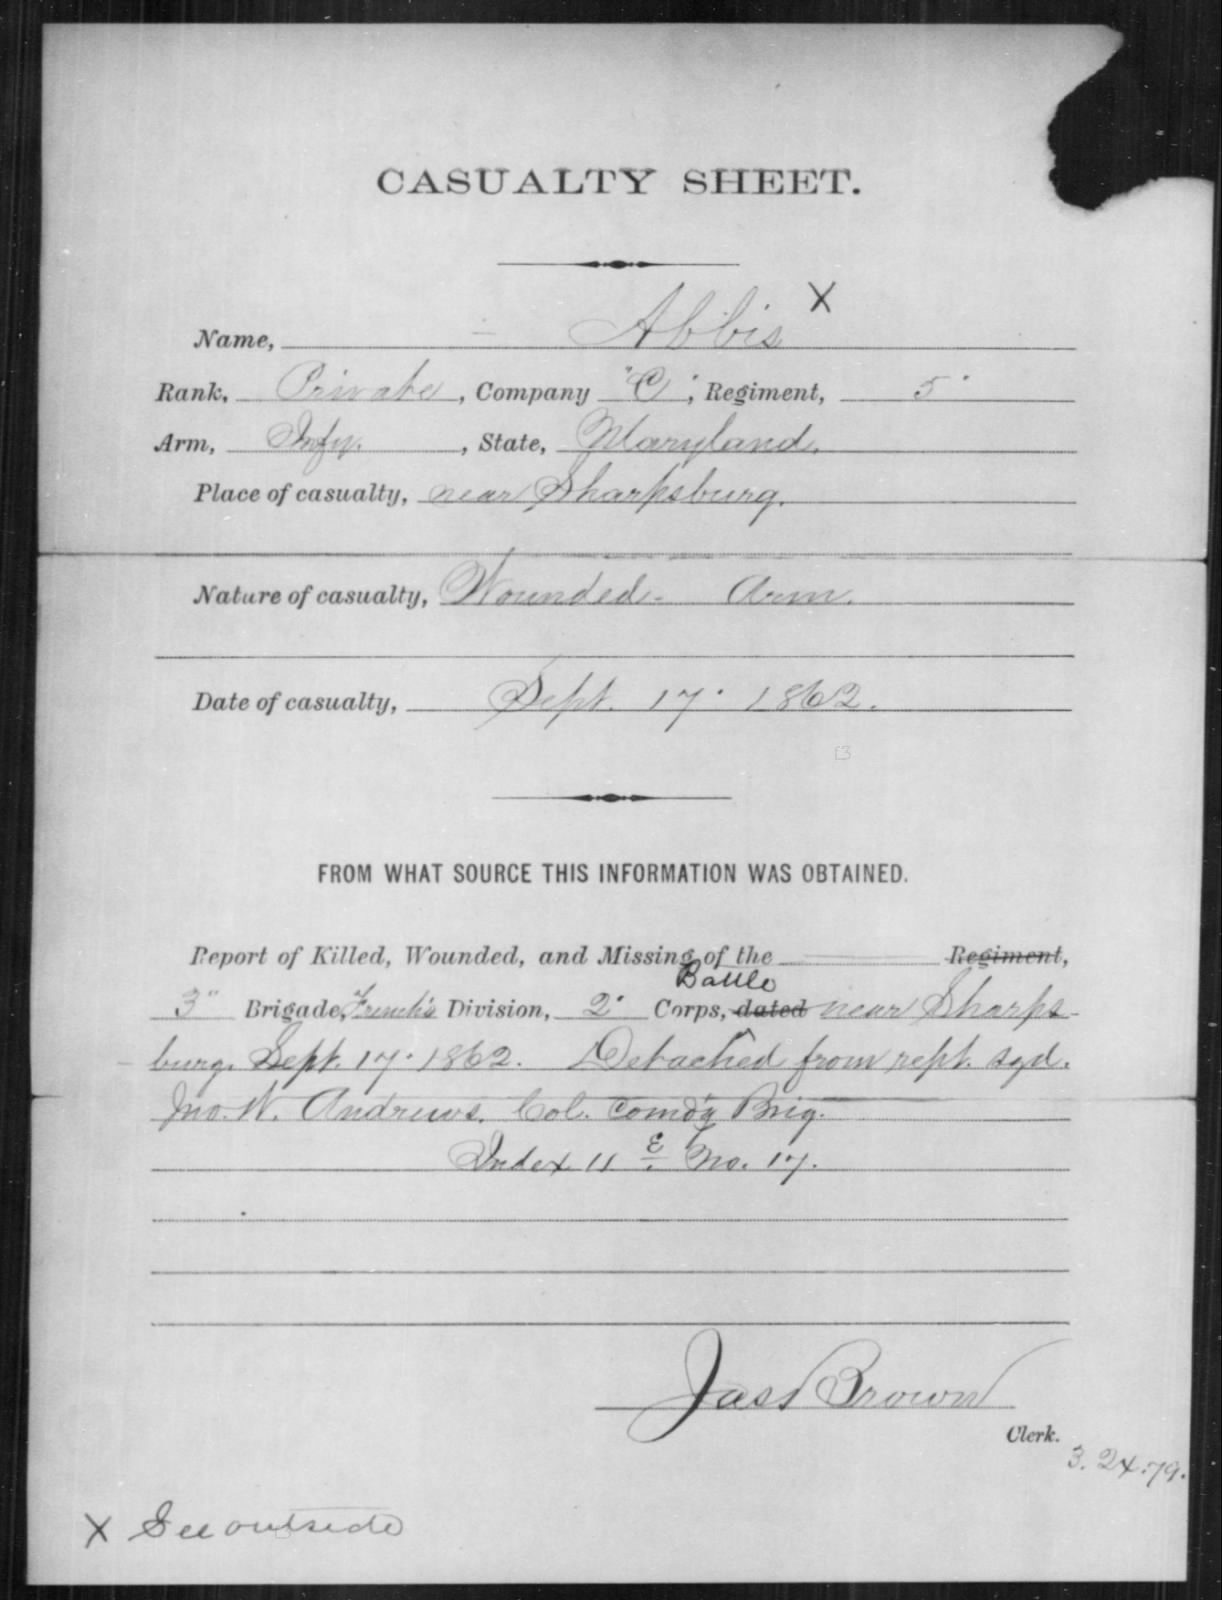 CASUALTY SHEET.
Name, Abbis X
Rank, Private, Company "C", Regiment, 5"
Arm, Infy., State, Maryland.
Place of casualty, near Sharpsburg.
Nature of casualty, Wounded - Arm.
Date of casualty, Sept. 17" 1862.
FROM WHAT SOURCE THIS INFORMATION WAS OBTAINED.
Report of Killed, Wounded, and Missing of the Regiment,
Battle
3" Brigade, French's Division, 2" Corps, dated near Sharps-
burg. Sept. 17" 1862. Detached from rept. sgd.
Jno. W. Andrews. Col. Comd'g Brig.
Index 11 E No. 17.
Jas Brown
Clerk.
3.24.79.
X See outside